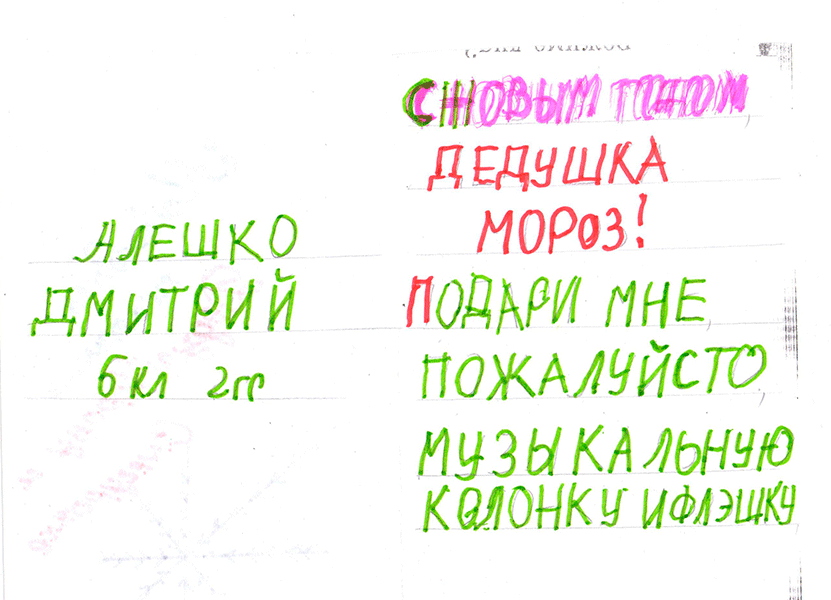 С НОВЫМ ГОДОМ
ДЕДУШКА
МОРОЗ!
ПОДАРИ МНЕ
ПОЖАЛУЙСТО
МУЗЫКАЛЬНУЮ
КОЛОНКУ И ФЛЭШКУ
АЛЕШКО
ДМИТРИЙ
6 кл 2гг